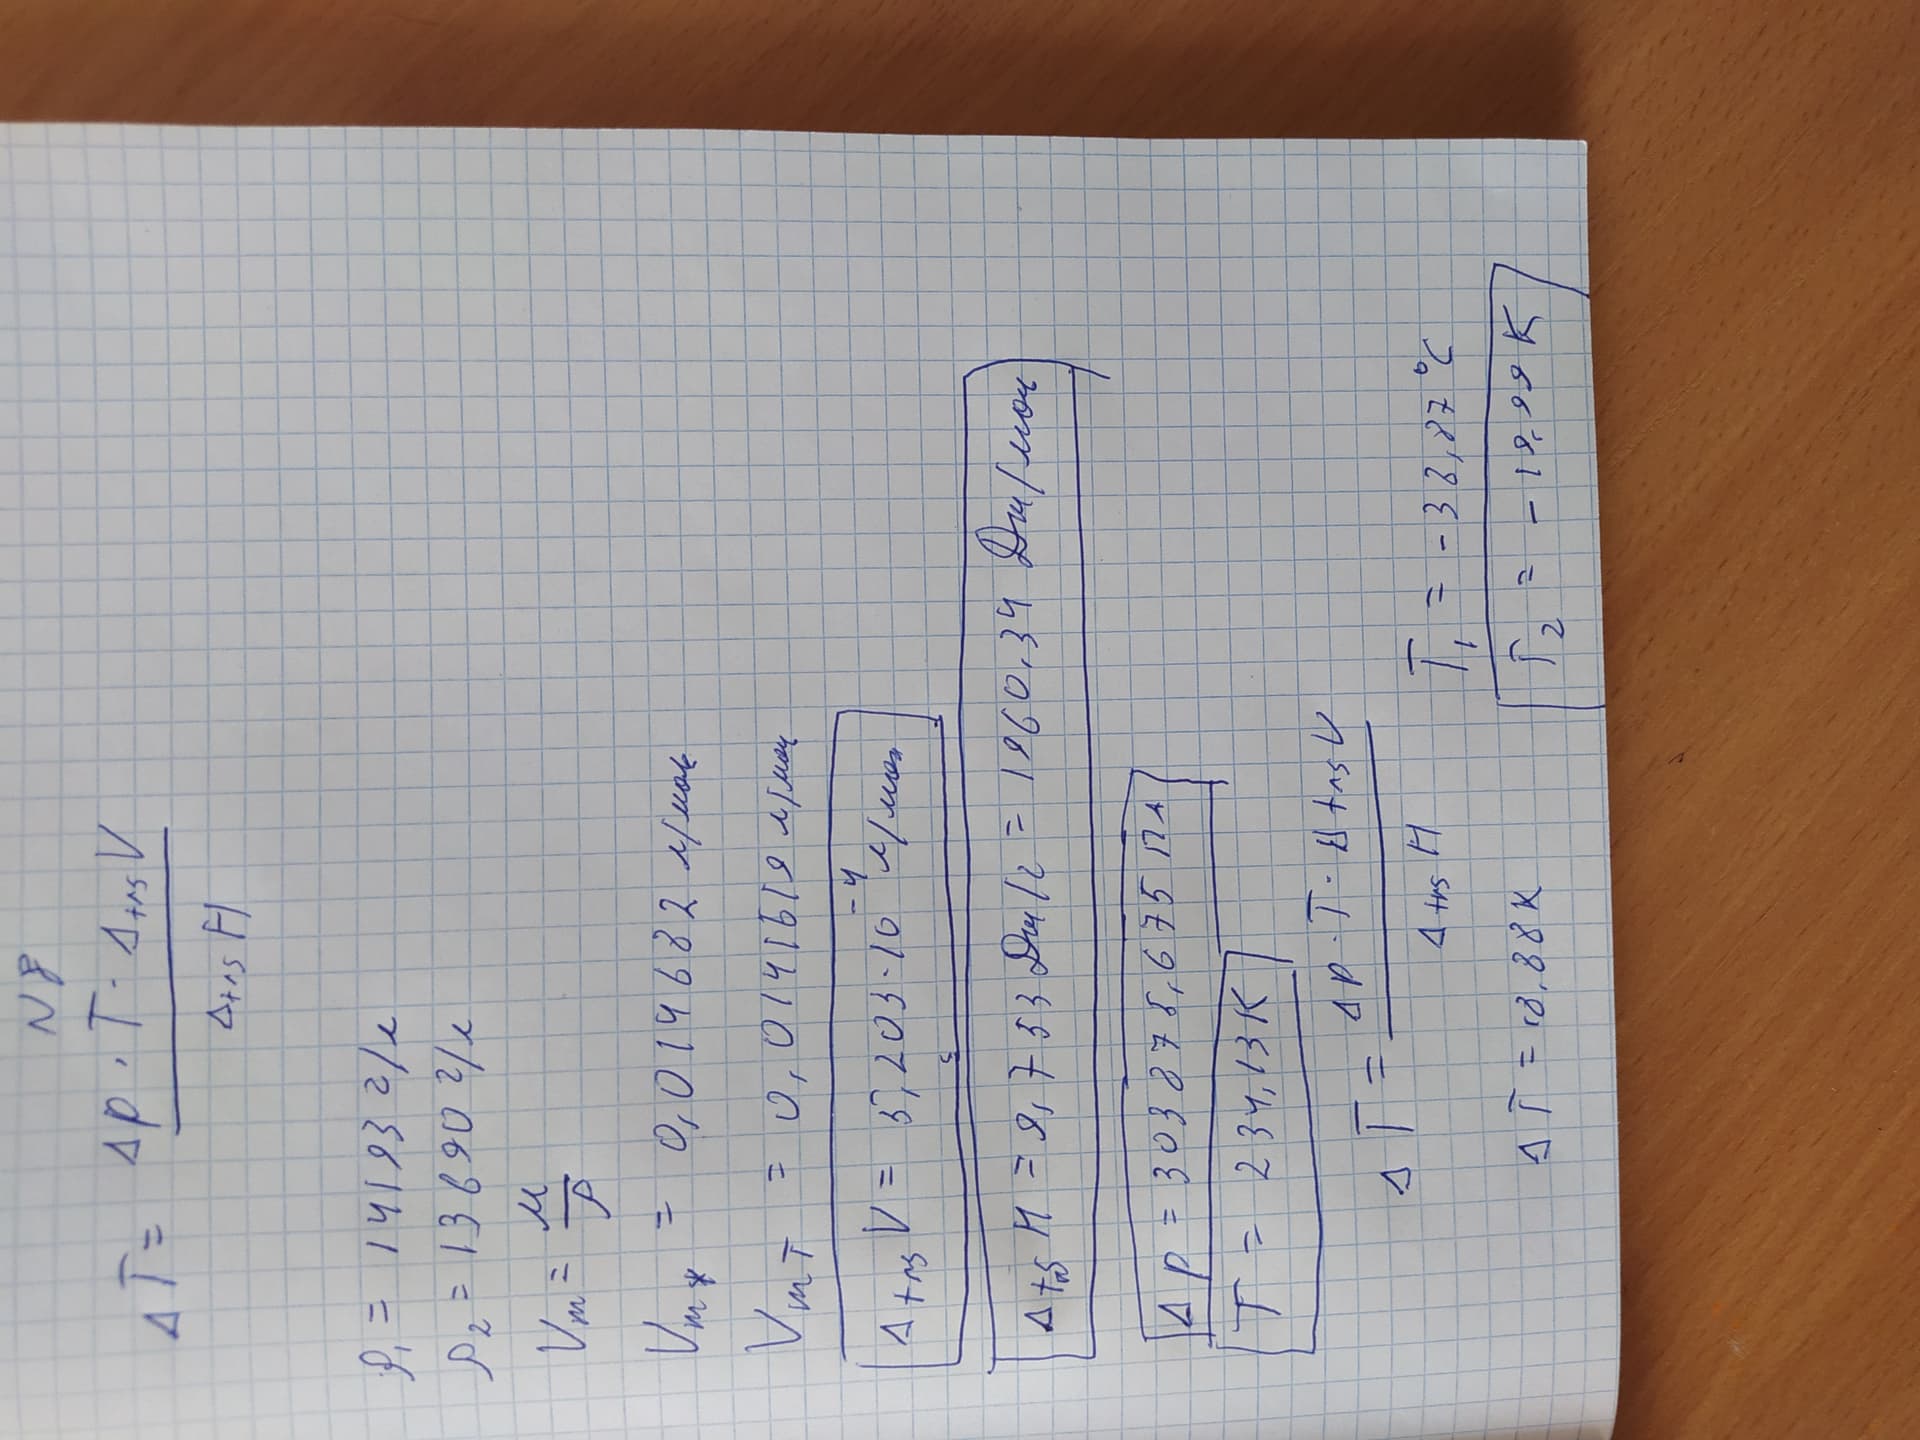 N8
ΔT = Δp · T · Δ₊ₙₛV / Δ₊ₙₛH
ρ₁ = 14193 г/л
ρ₂ = 13690 г/л
Vₘ = M/ρ
Vₘж = 0,014682 л/моль
VₘT = 0,0141619 л/моль
ΔV = 5,203·10⁻⁴ л/моль
ΔH = 9,7733 Дж/г = 1960,34 Дж/моль
Δp = 303878,6675 Па
T = 234,13 K
ΔT = Δp · T · ΔV / ΔH
T₁ = -38,87°C
ΔT = 18,88 K
T₂ = -19,99 K